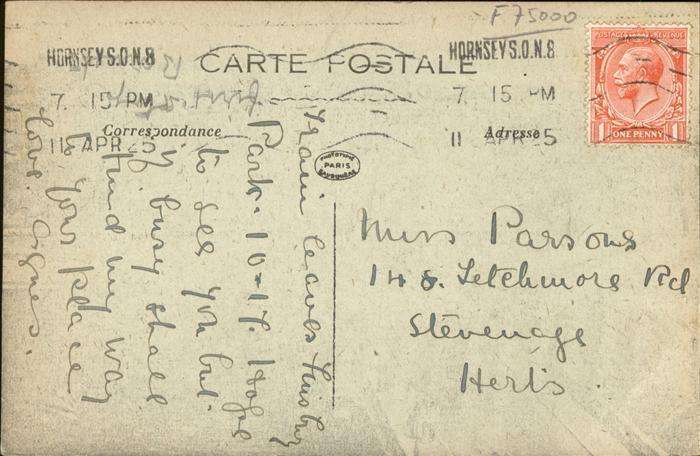 F75000
HORNSEY S.O. N.8
HORNSEY S.O. N.8
CARTE POSTALE
7. 15 PM
7. 15 PM
11 APR 25
11 APR 25
Correspondance
Adresse
POSTAGE REVENUE
ONE PENNY
1 1
PARIS
Train leaves Finsbury
Park. 10-17. Hope
to see you but
if busy shall
find my way
to your place
love. Agnes.
Miss Parsons
148. Letchmore Rd
Stevenage
Herts